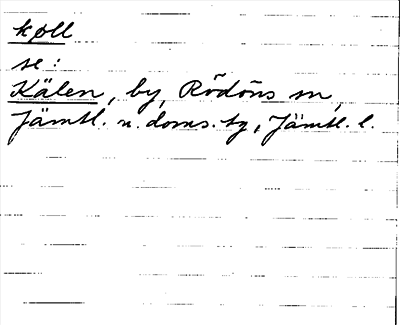 køll
se:
Kälen, by, Rödöns sn,
Jämtl. n. doms. tg, Jämtl. l.